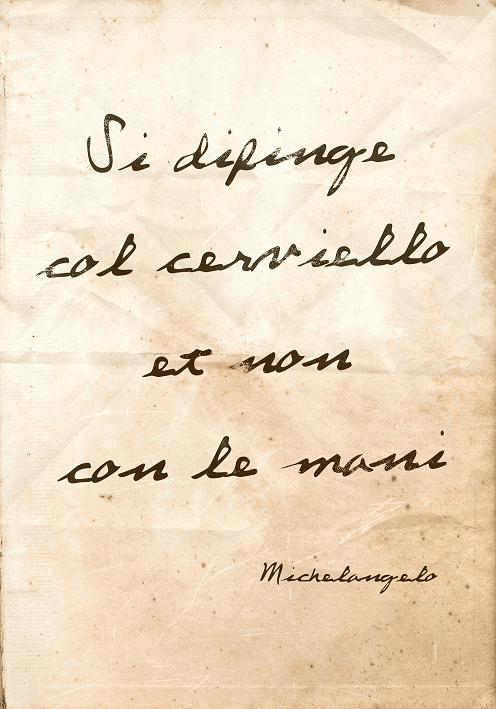 Si dipinge
col cerviello
et non
con le mani
Michelangelo